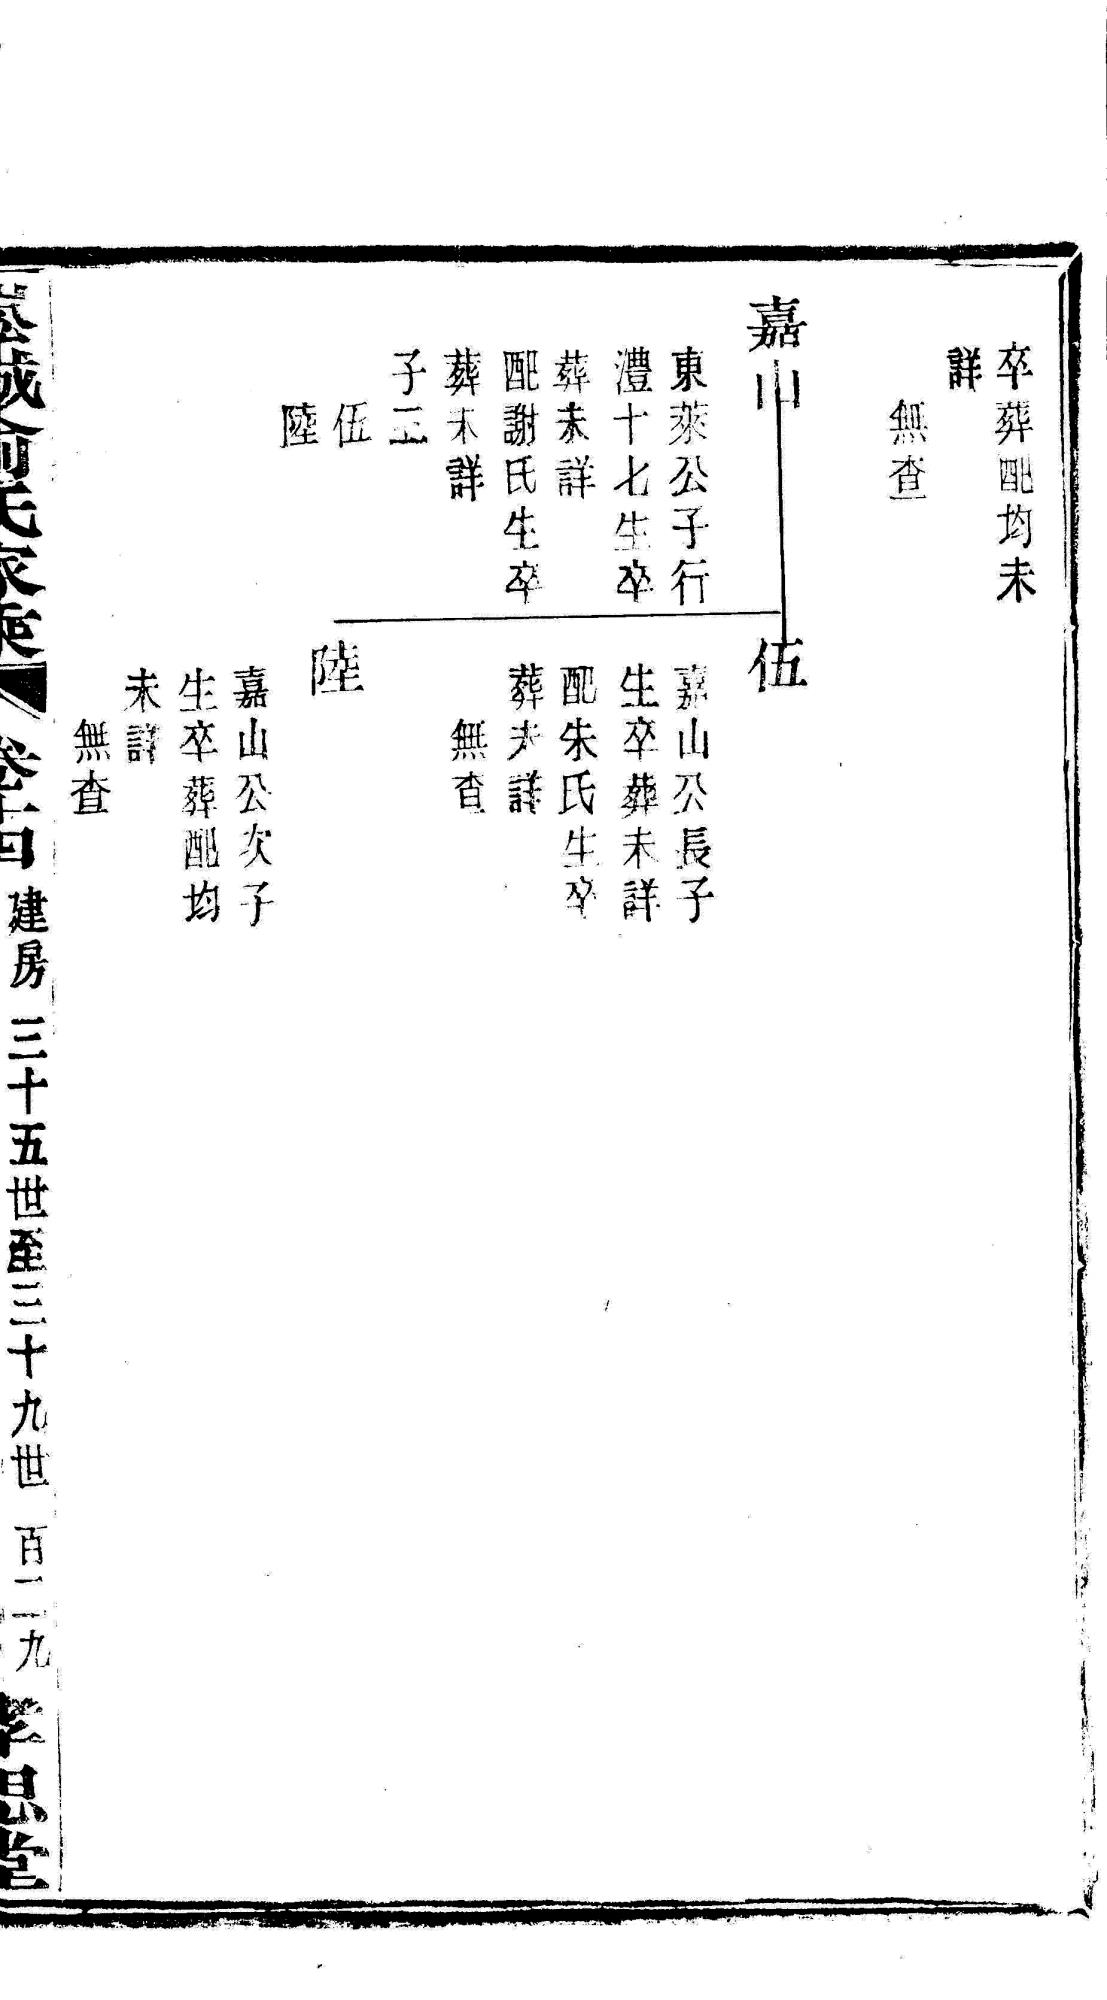 卒葬配均未
詳
無查
嘉山
東萊公子行
澧十七生卒
葬未詳
配謝氏生卒
葬未詳
子二
伍
陸
伍
嘉山公長子
生卒葬未詳
配朱氏生卒
葬未詳
無查
陸
嘉山公次子
生卒葬配均
未詳
無查
城俞氏家乘
卷十四
建房
三十五世至三十九世
百二九
孝思堂